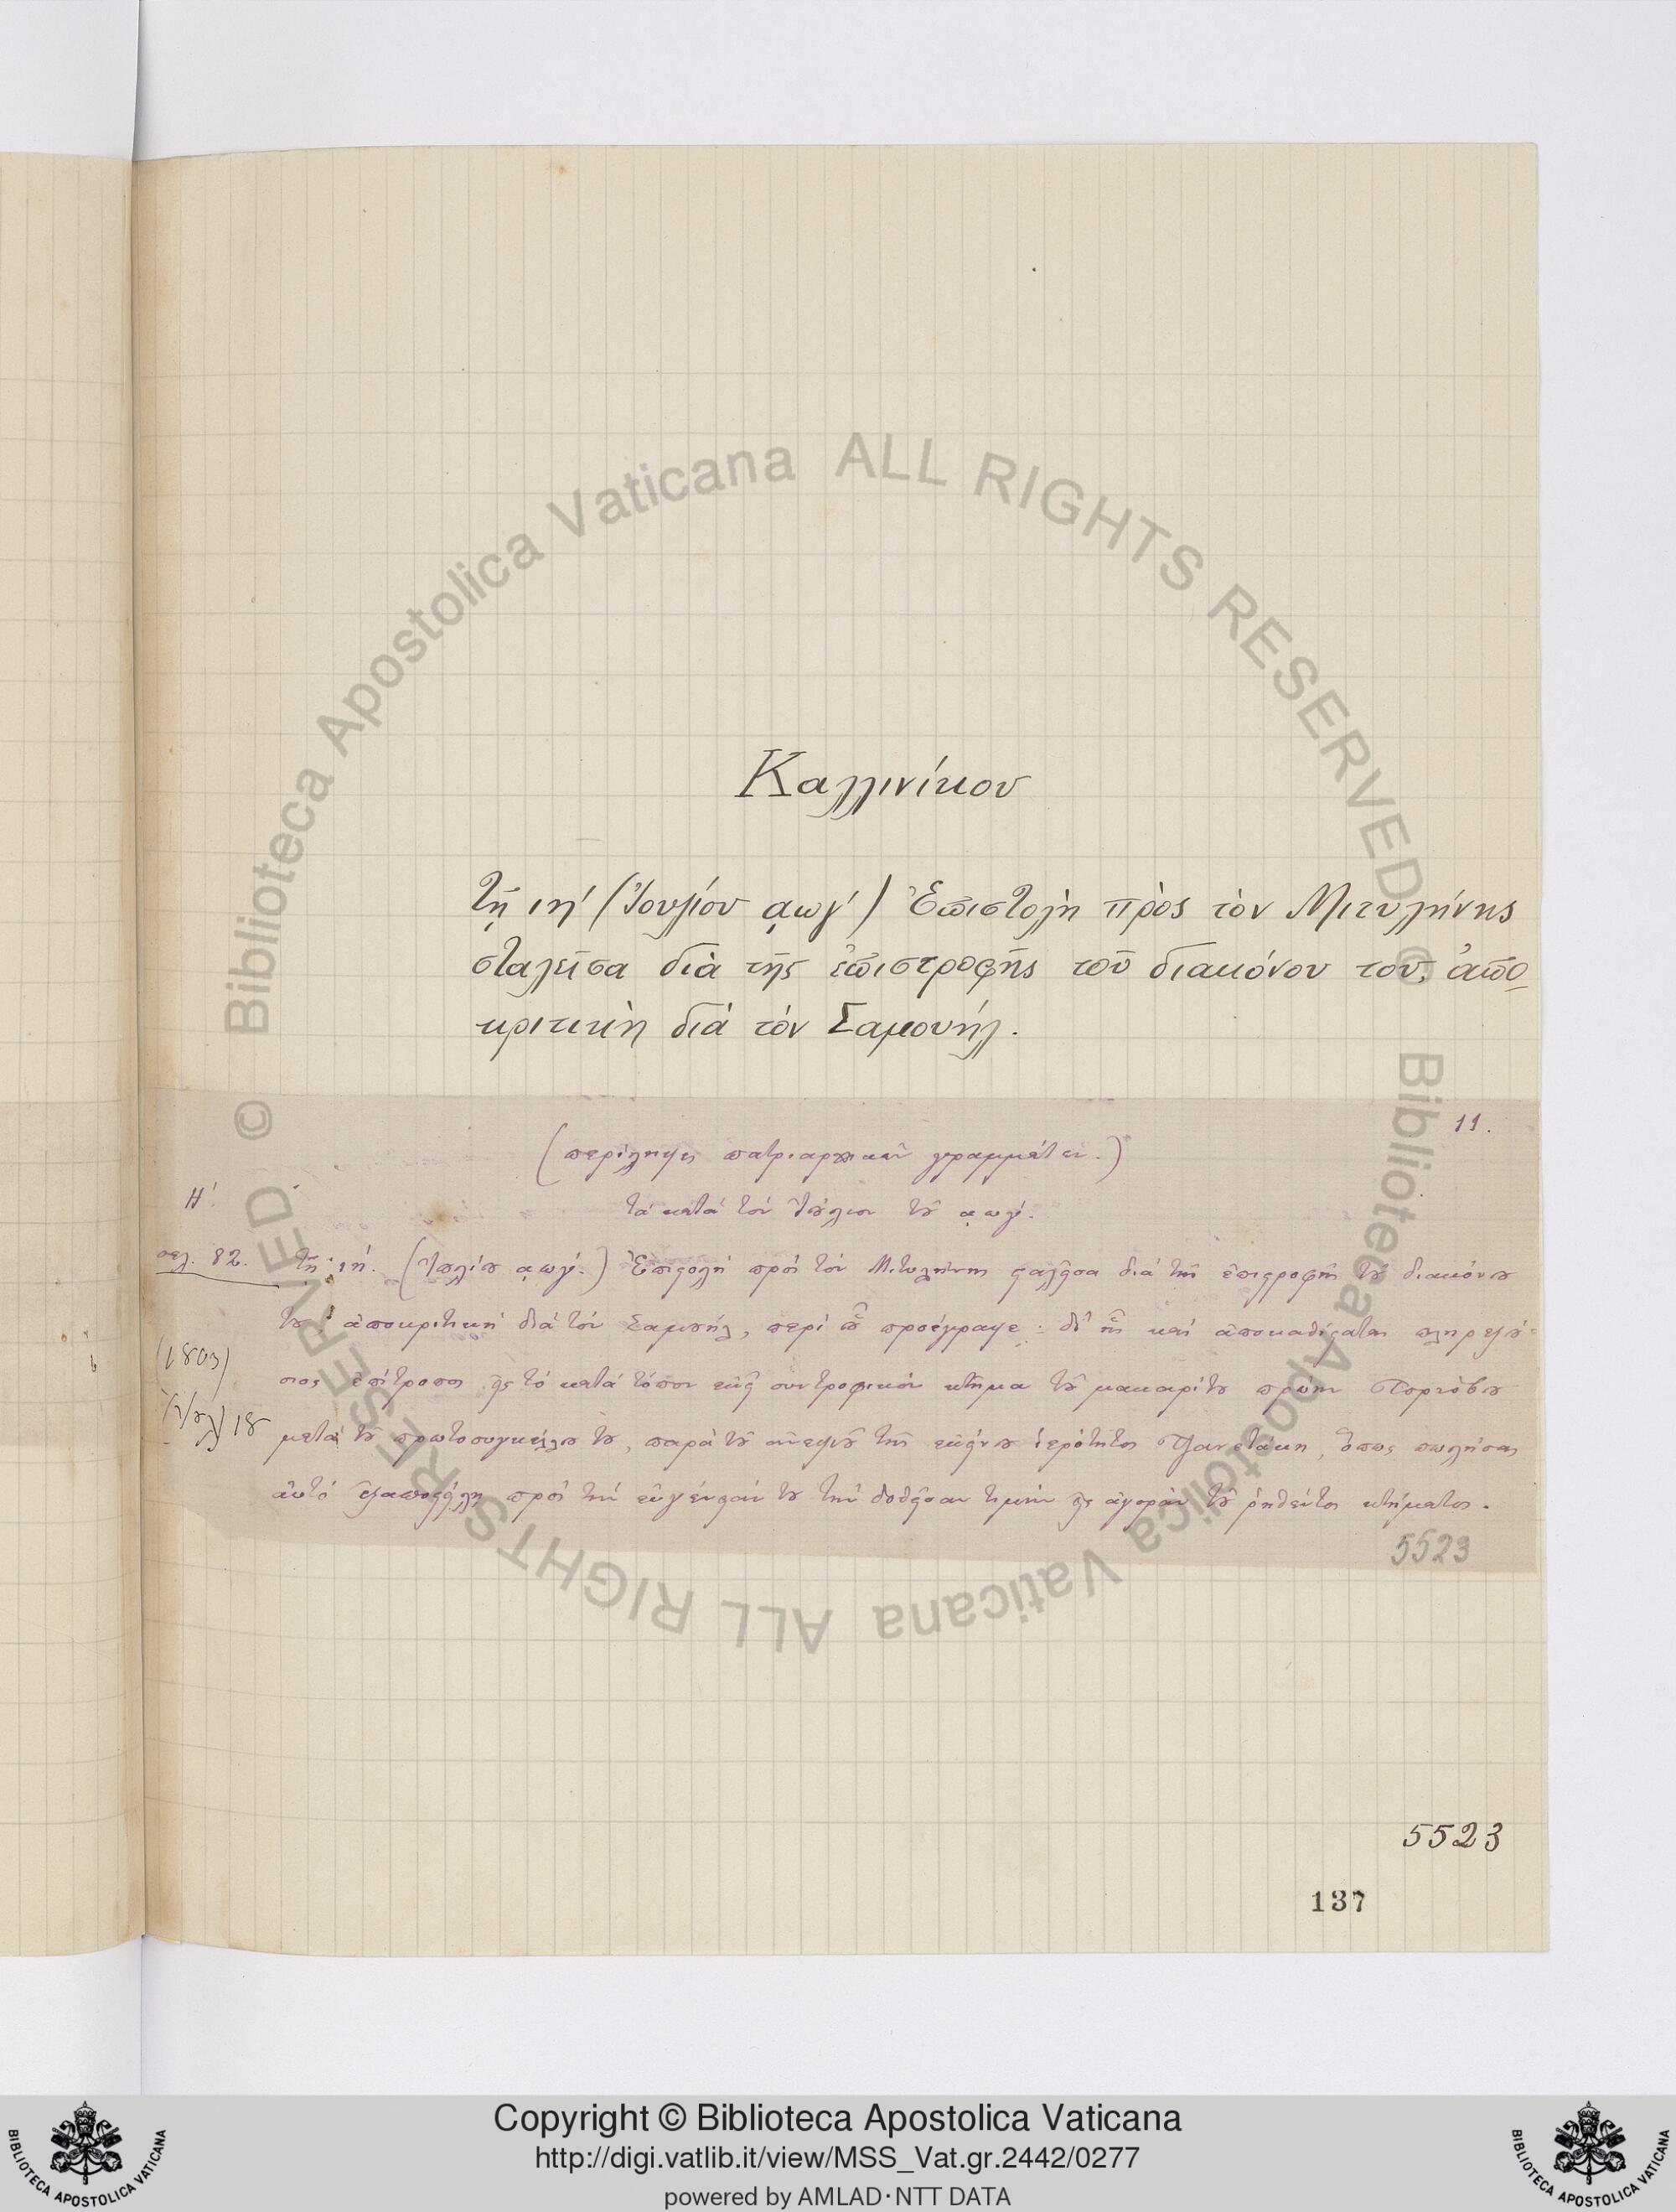 Καλλινίκου
τῇ ιη' (Ἰουλίου ͵αωγ') Ἐπιστολὴ πρὸς τὸν Μιτυλήνης
σταλεῖσα διὰ τῆς ἐπιστροφῆς τοῦ διακόνου του, ἀπο-
κριτικὴ διὰ τὸν Σαμουήλ.
11.
(περίληψις πατριαρχικῶν γραμμάτων.)
Η'.
τὰ κατὰ τὸν Ἰούλιον τοῦ ͵αωγ'.
σελ. 82.
τῇ ιή. (Ἰουλίου ͵αωγ'.) Ἐπιστολὴ πρὸς τὸν Μιτυλήνης σταλεῖσα διὰ τῆς ἐπιστροφῆς τοῦ διακόνου
του, ἀποκριτικὴ διὰ τὸν Σαμουήλ, περὶ οὗ προέγραψε· δι' ἧς καὶ ἀποκαθίσταται πληρεξού-
(1803)
σιος ἐπίτροπος εἰς τὸ κατὰ τόπον ἐκεῖ συντροφικὸν κτῆμα τοῦ μακαρίτου πρώην
Ἰουλ 18
μετὰ τοῦ πρωτοσυγκέλλου του, παρὰ τοῦ ἀνεψιοῦ τῆς ἐκείνου ἱερότητος, ὅπως πωλήσας
αὐτὸ ἐξαποστείλῃ πρὸς τὴν εὐγένειάν του τὴν δοθεῖσαν τιμὴν εἰς ἀγορὰν τοῦ ῥηθέντος κτήματος.
5523
5523
137
Copyright © Biblioteca Apostolica Vaticana
http://digi.vatlib.it/view/MSS_Vat.gr.2442/0277
powered by AMLAD·NTT DATA
BIBLIOTECA APOSTOLICA VATICANA
BIBLIOTECA APOSTOLICA VATICANA
© Biblioteca Apostolica Vaticana ALL RIGHTS RESERVED
© Biblioteca Apostolica Vaticana ALL RIGHTS RESERVED